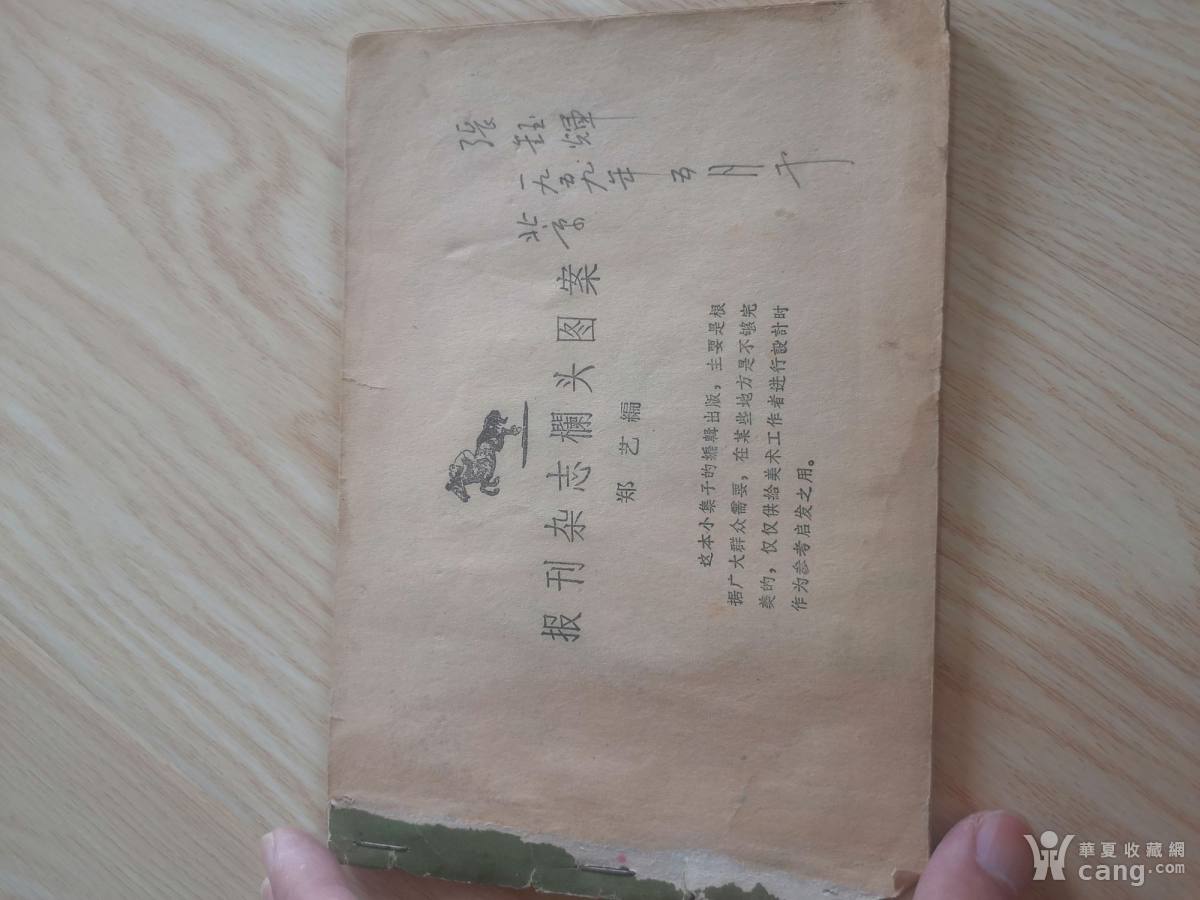 張鈺輝
一九五九年五月于
北京
报刊杂志欄头图案
郑艺編
这本小集子的編輯出版，主要是根
据广大群众需要，在某些地方是不够完
美的，仅仅供給美术工作者进行設計时
作为参考启发之用。
華夏收藏網
cang.com